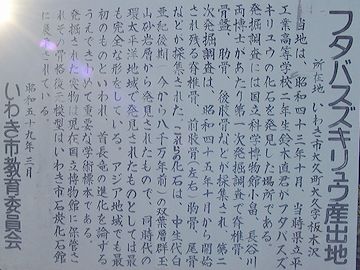 フタバスズキリュウ産出地
所在地 いわき市大久町大久字板木沢
当地は、昭和四十三年十月、当時県立平
工業高等学校二年生鈴木直君がフタバスズ
キリュウの化石を発見した場所である。
発掘調査には国立科学博物館小畠、長谷川
両博士があたり、第一次発掘調査で発掘
された脊椎骨、前肢骨(左右)、胸骨、尾骨
骨盤、肋骨、後肢骨などが採集され、第二
次発掘調査は、昭和四十五年十月から開始
などが採集された。これらの化石は、中生代白
亜紀後期、今から八千万年前の双葉層群玉
山砂岩層から発見されたもので、同時代の
環太平洋地域で発見されたものとしては最
も完全な形をしている。アジア地域でも最
初のものといわれ、首長竜の進化を論ずる
うえできわめて重要な学術標本である。
発掘された実物は現在国立博物館に保管さ
れその骨格復元模型はいわき市石炭化石館
に展示されている。
昭和五十九年三月
いわき市教育委員会